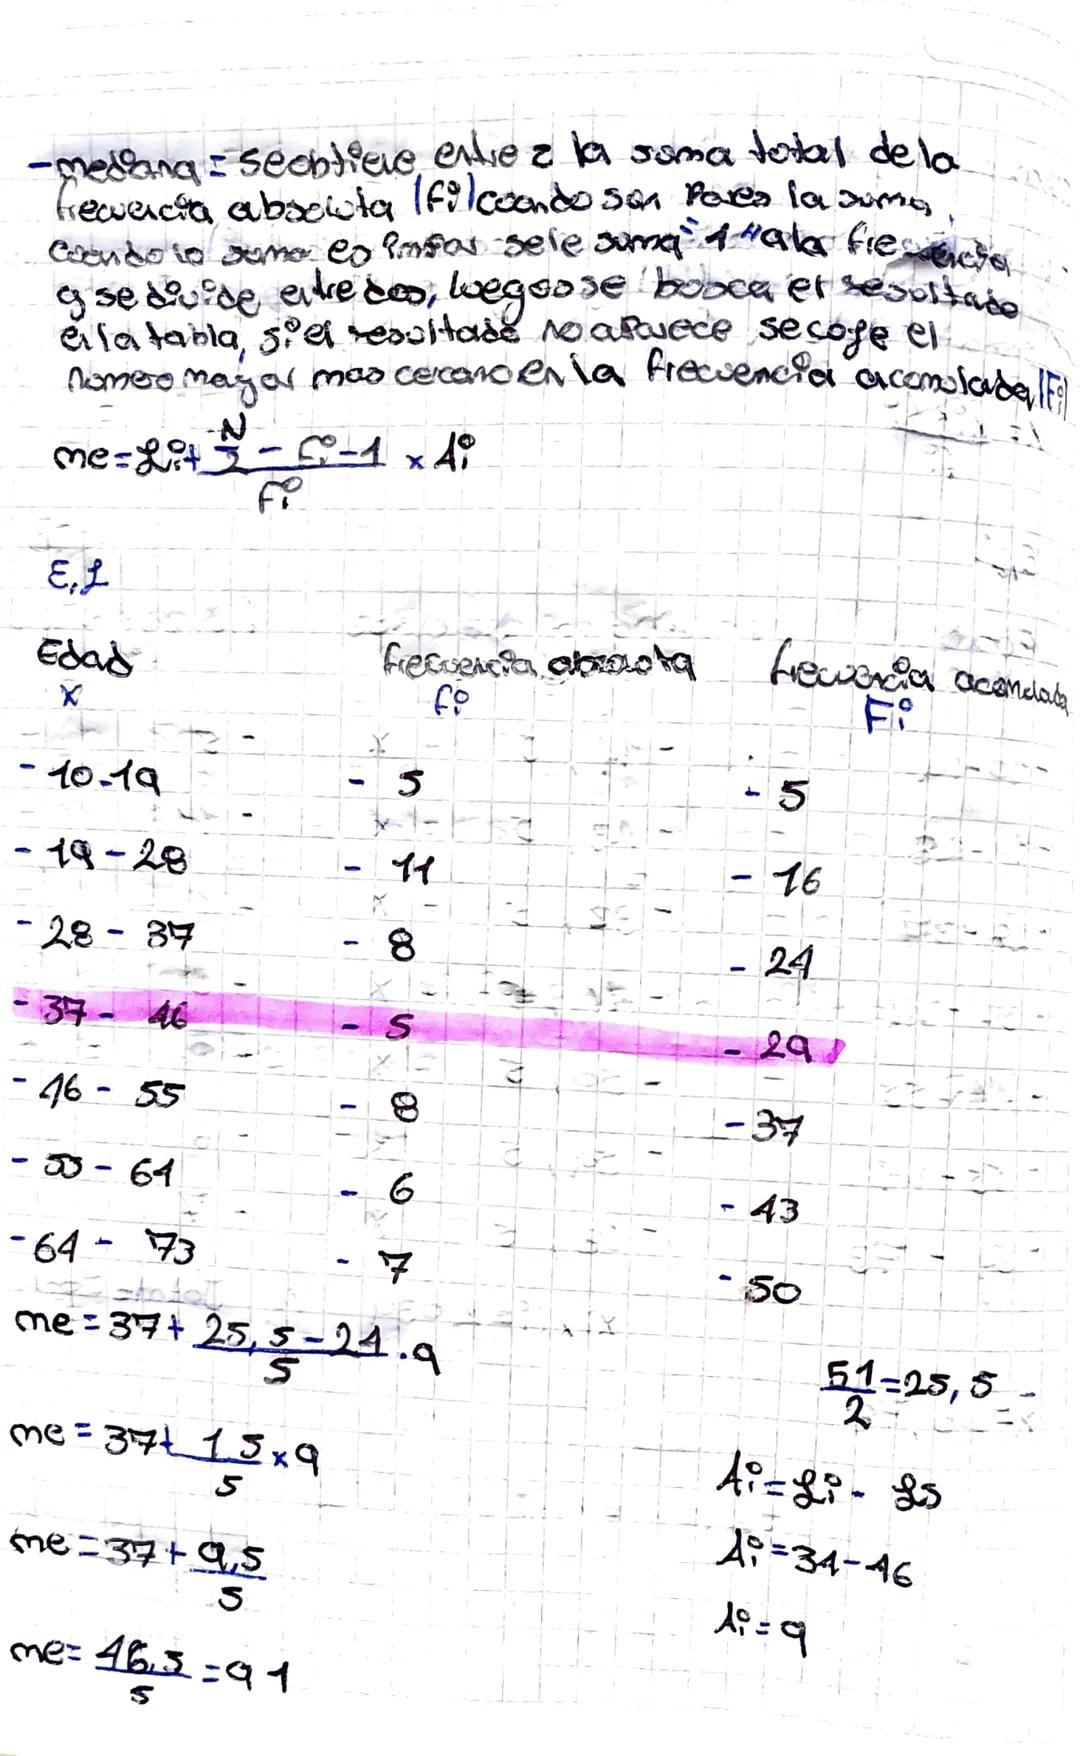 -mediana = se obtiene entre 2 la suma total de la
frecuencia absoluta |fi| cuando son Pares la suma,
cuando la suma es impar se le suma "1" a la frecuencia
y se divide entre dos, luego se busca el resultado
en la tabla, si el resultado no aparece se coge el
numero mayor mas cercano en la frecuencia acomulada |Fi|
me = Li + N/2 - fi-1 / fi x Ai
E,J
Edad frecuencia absoluta frecuencia acomulada
x fi Fi
- 10-19 - 5 - 5
- 19-28 - 11 - 16
- 28 - 37 - 8 - 24
- 37 - 46 - 5 - 29
- 46 - 55 - 8 - 37
- 55 - 64 - 6 - 43
- 64 - 73 - 7 - 50
me = 37 + 25,5 - 24 / 5 . 9
51/2 = 25,5
me = 37 + 1.5 / 5 x 9
Ai = Li - Ls
me = 37 + 9,5 / 5
Ai = 37 - 46
Ai = 9
me = 46,5 / 5 = 9 1